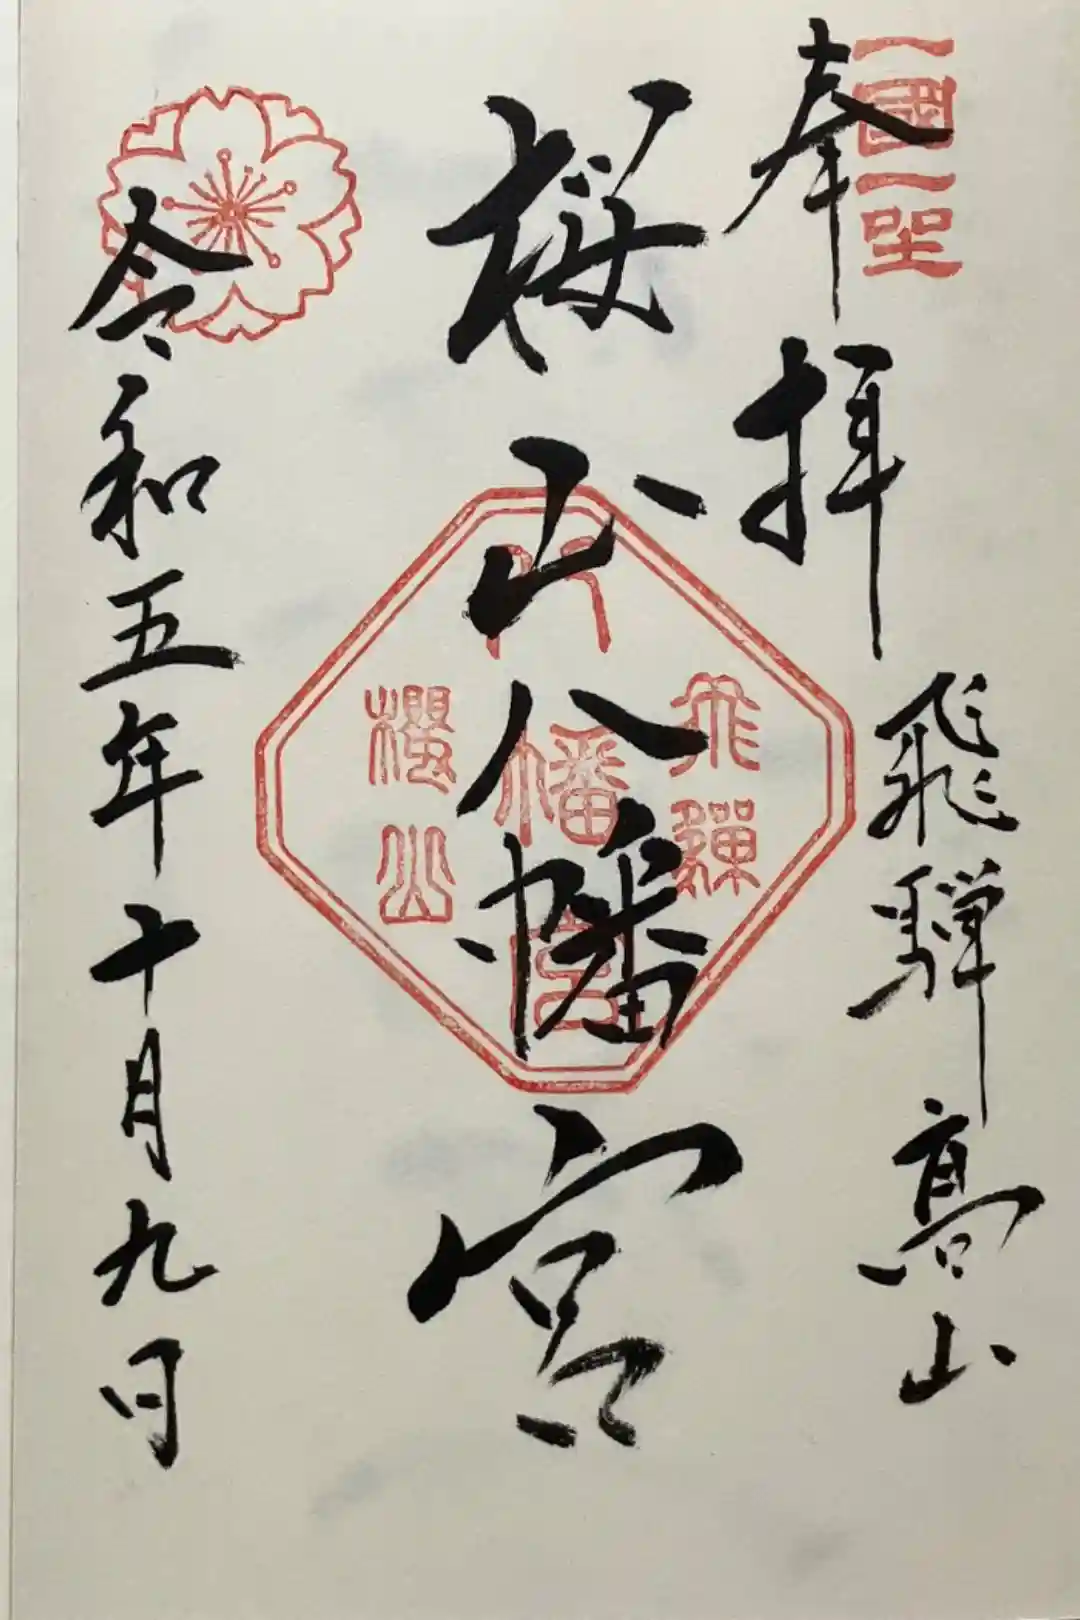 一國一聖
奉拝
飛騨高山
桜山八幡宮
飛驒
八幡宮
櫻山
令和五年十月九日